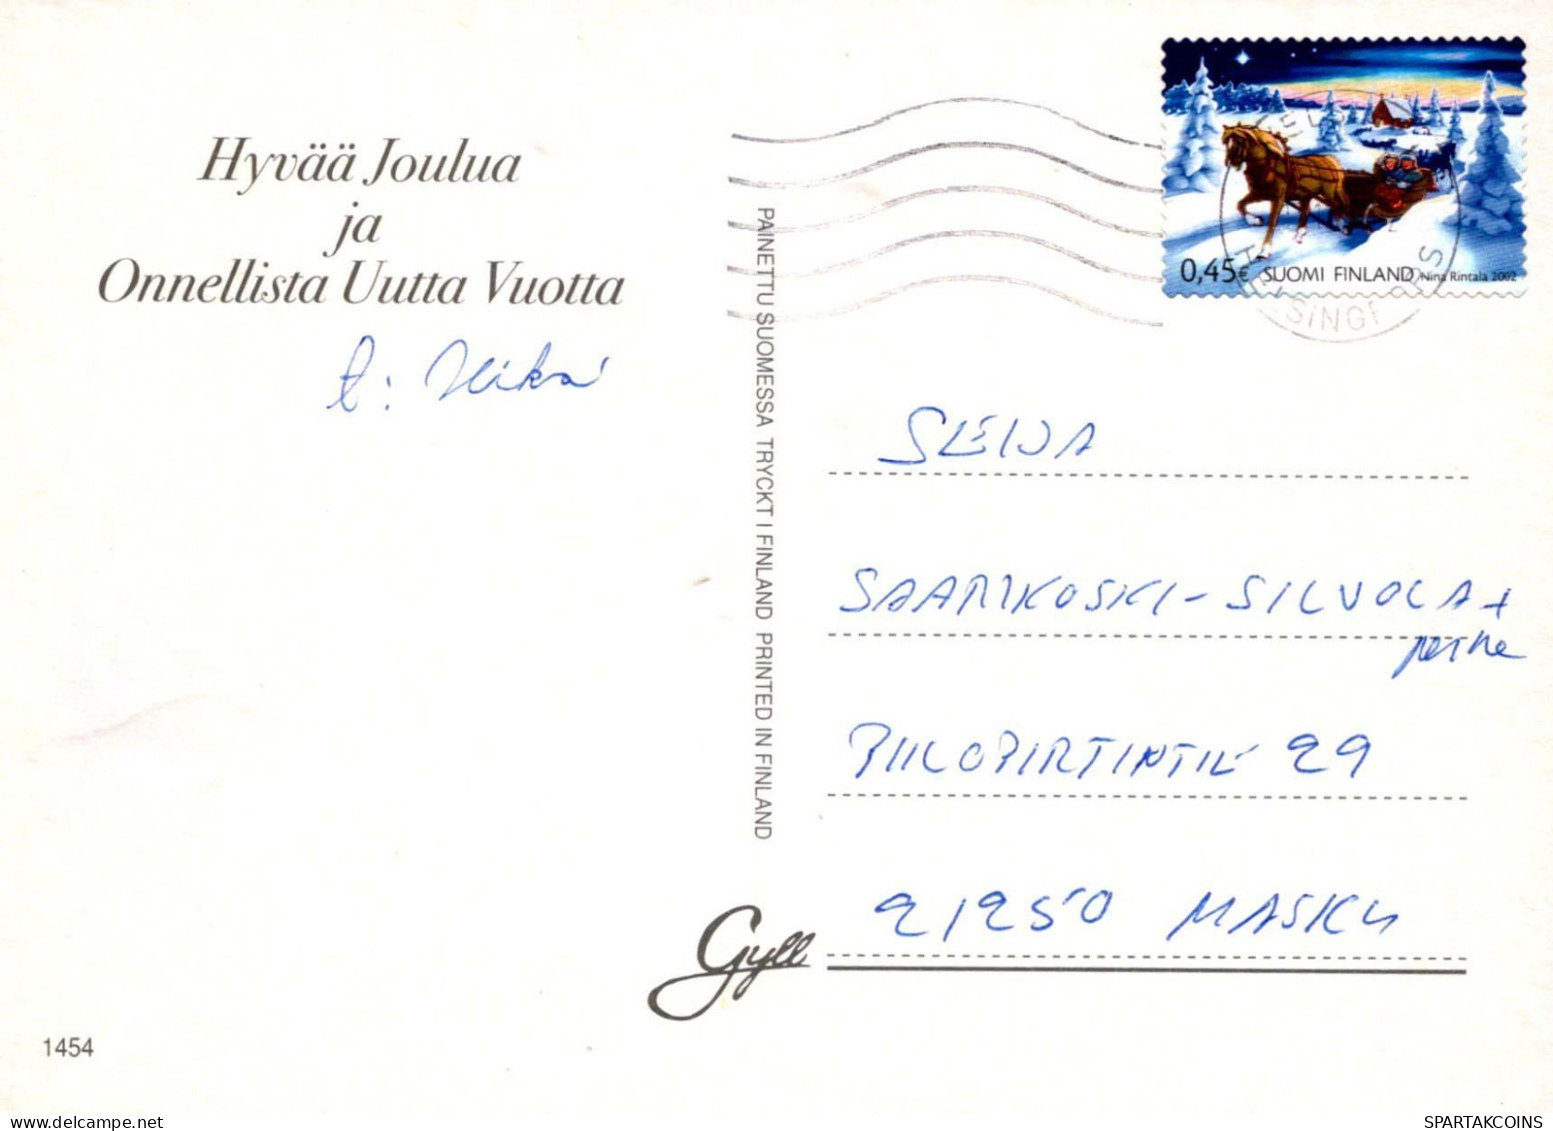 Hyvää Joulua
ja
Onnellista Uutta Vuotta
t: Mika
0,45€ SUOMI FINLAND Nina Rintala 2002
HELSINGFORS
PAINETTU SUOMESSA TRYCKT I FINLAND PRINTED IN FINLAND
SEIJA
SAARIKOSKI-SILVOLA +
perhe
PIILOPIRTINTIE 29
21250 MASKU
Gyll
1454
delcampe.net
SPARTAKCOINS